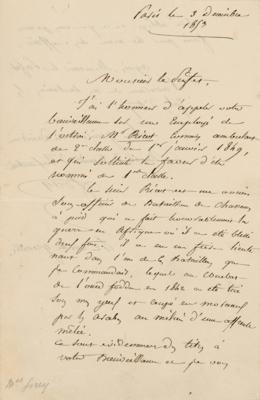 Paris le 3 Décembre
1853
Monsieur le Préfet,
J'ai l'honneur d'appeler votre
bienveillance sur un Employé de
l'octroi, Mr Birot Commis ambulant
de 2e classe du 1er janvier 1849,
et qui sollicite la faveur d'être
nommé de 1ère classe.
Le sieur Birot est un ancien
Sous-officier de Bataillon de Chasseurs
à pied qui a fait honorablement la
guerre en Afrique où il a été blessé
deux fois. Il a eu un frère lieute
nant dans l'un des Bataillons que
je commandais, lequel au combat
de l'oued fodda en 1842 a été tué
sous mes yeux et coupé en morceaux
par les arabes au milieu d'une affreuse
mêlée.
Ce sont évidemment des titres à
votre Bienveillance et je vous